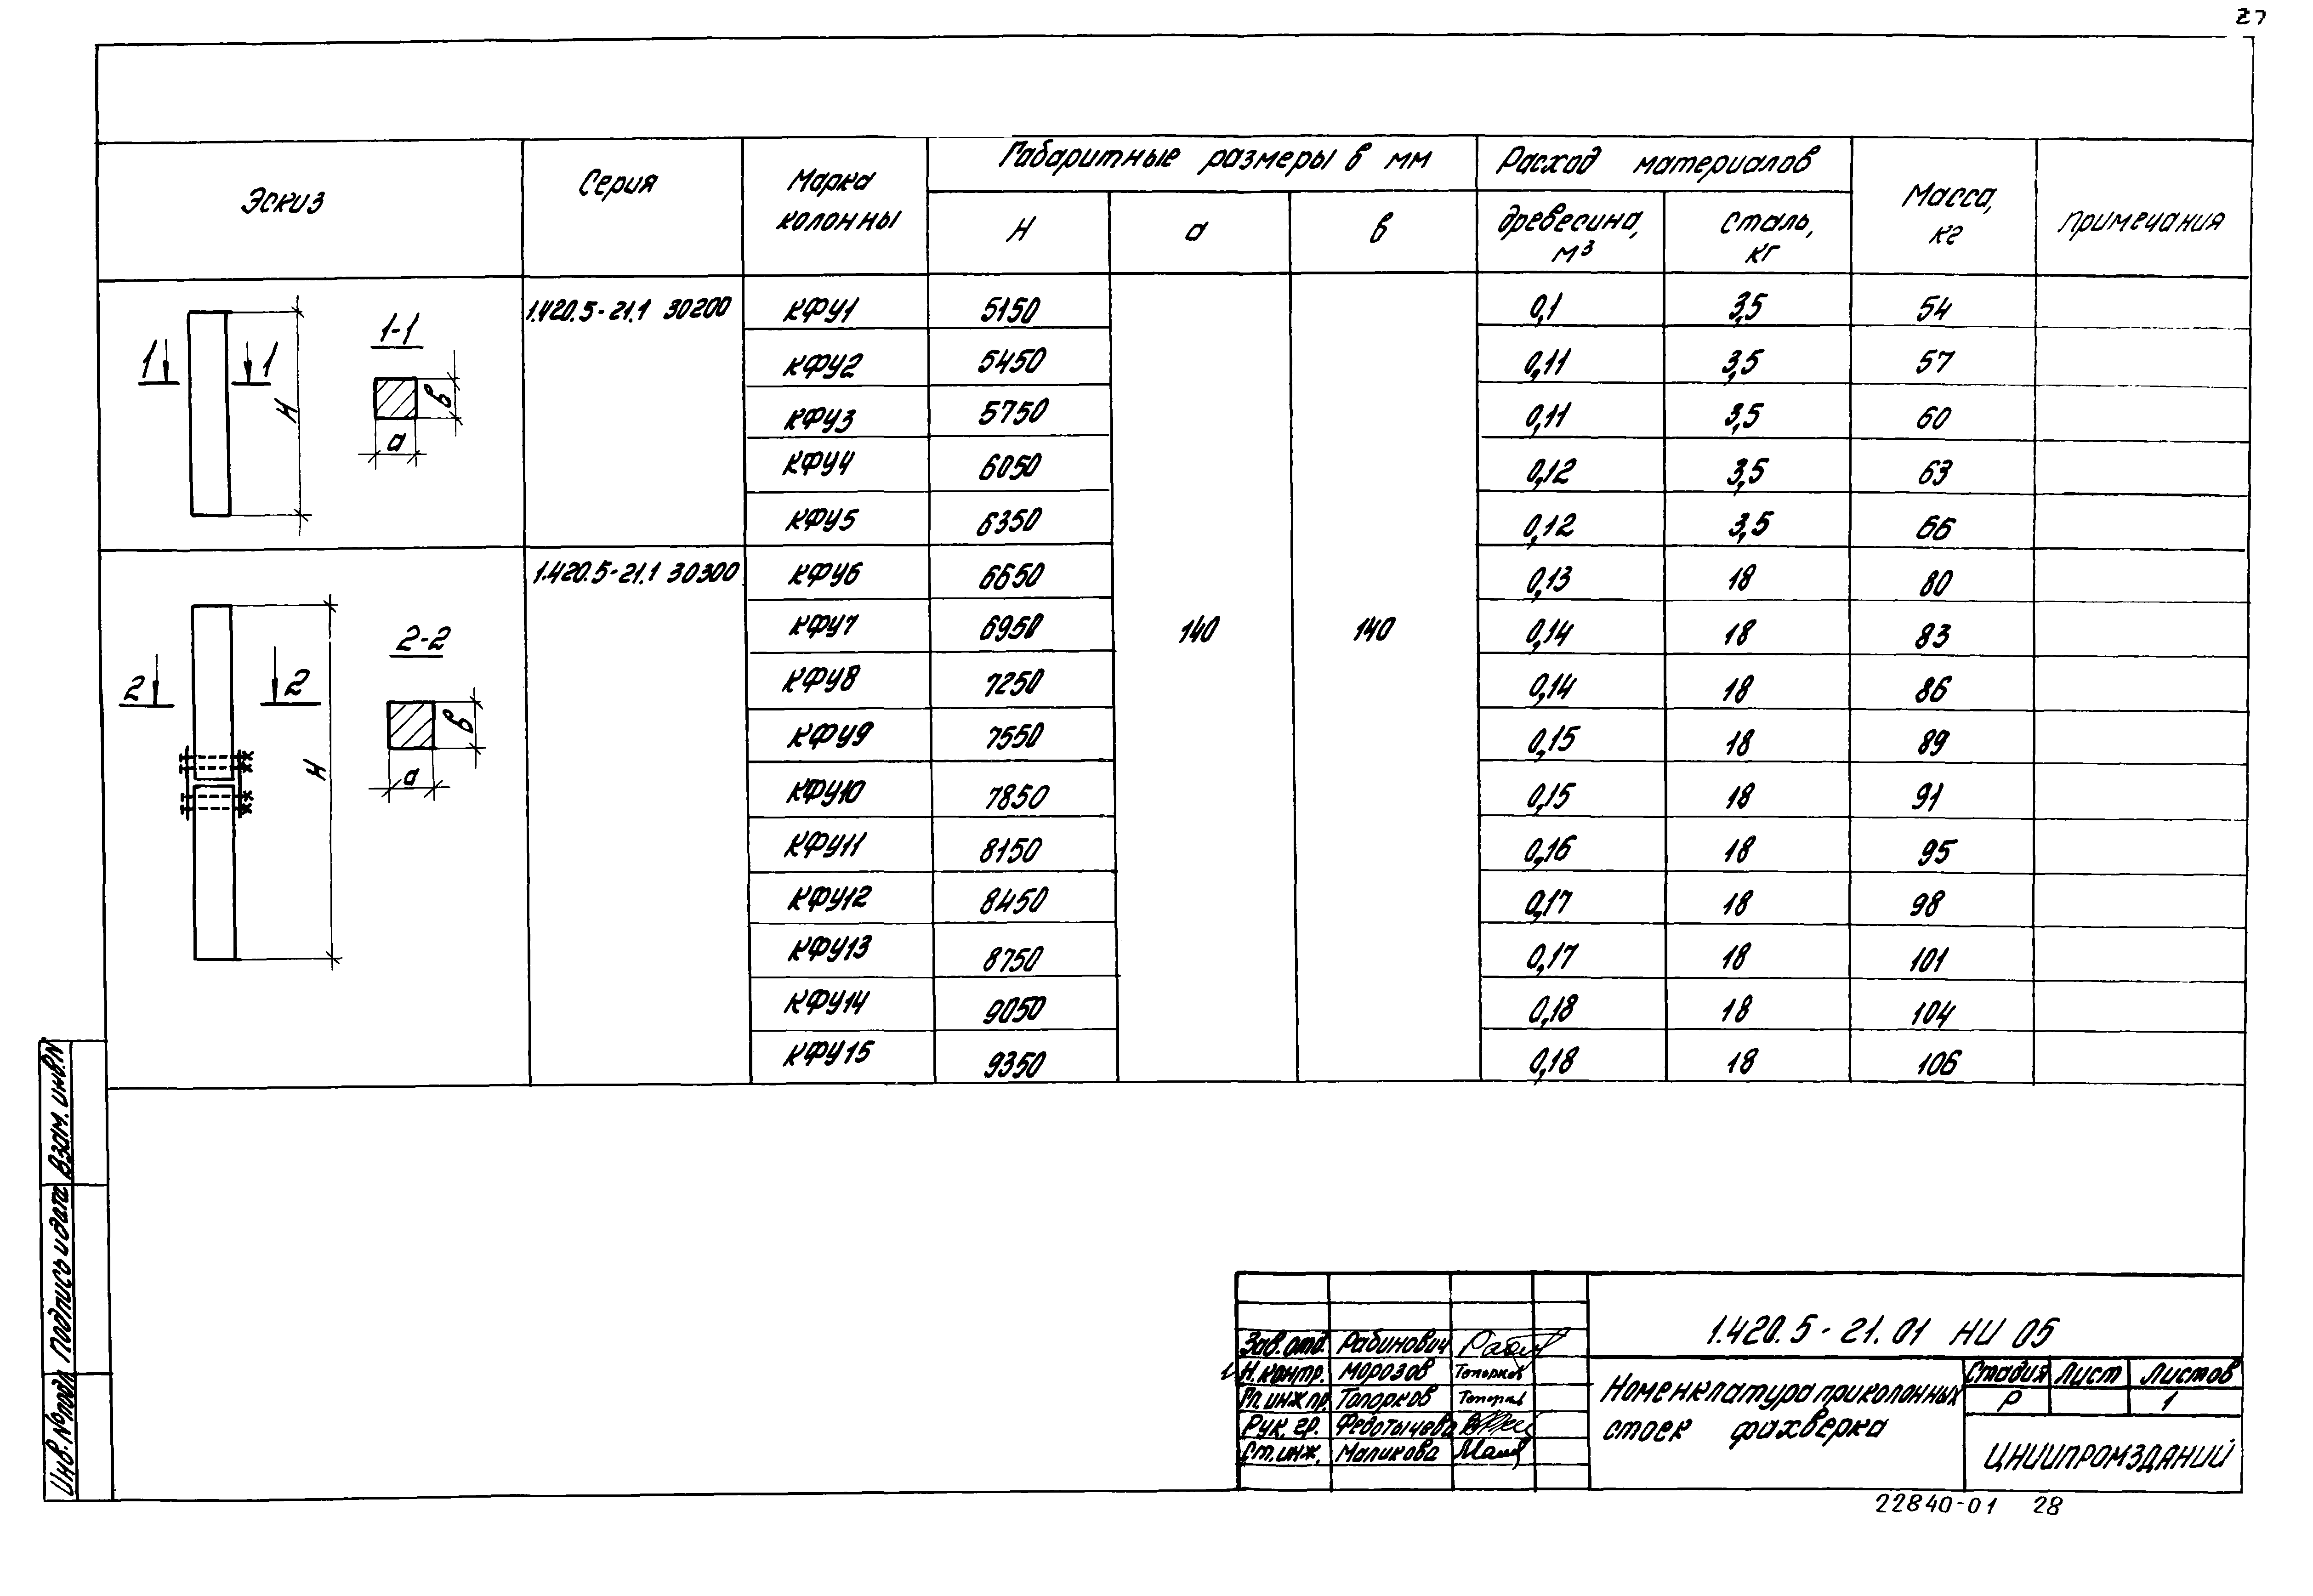 27
Эскиз Серия Марка колонны Габаритные размеры в мм Расход материалов Масса, кг Примечания
H а в древесина, м³ сталь, кг
1.420.5-21.1 30200 КФУ1 5150 0,1 3,5 54
КФУ2 5450 0,11 3,5 57
КФУ3 5750 0,11 3,5 60
КФУ4 6050 0,12 3,5 63
КФУ5 6350 0,12 3,5 66
1-1
1 1
H
в
а
1.420.5-21.1 30300 КФУ6 6650 0,13 18 80
КФУ7 6950 140 140 0,14 18 83
КФУ8 7250 0,14 18 86
КФУ9 7550 0,15 18 89
КФУ10 7850 0,15 18 91
КФУ11 8150 0,16 18 95
КФУ12 8450 0,17 18 98
КФУ13 8750 0,17 18 101
КФУ14 9050 0,18 18 104
КФУ15 9350 0,18 18 106
2-2
2 2
H
в
а
Взам. инв. N
Подпись и дата
Инв. № подл
Зав. отд. Рабинович
Н. контр. Морозов Топорков
Гл. инж. пр. Топорков
Рук. гр. Федотычева
Ст. инж. Маликова
1.420.5-21.01 НИ 05
Номенклатура приколонных
стоек фахверка
Стадия Лист Листов
Р 1
ЦНИИПРОМЗДАНИЙ
22840-01 28